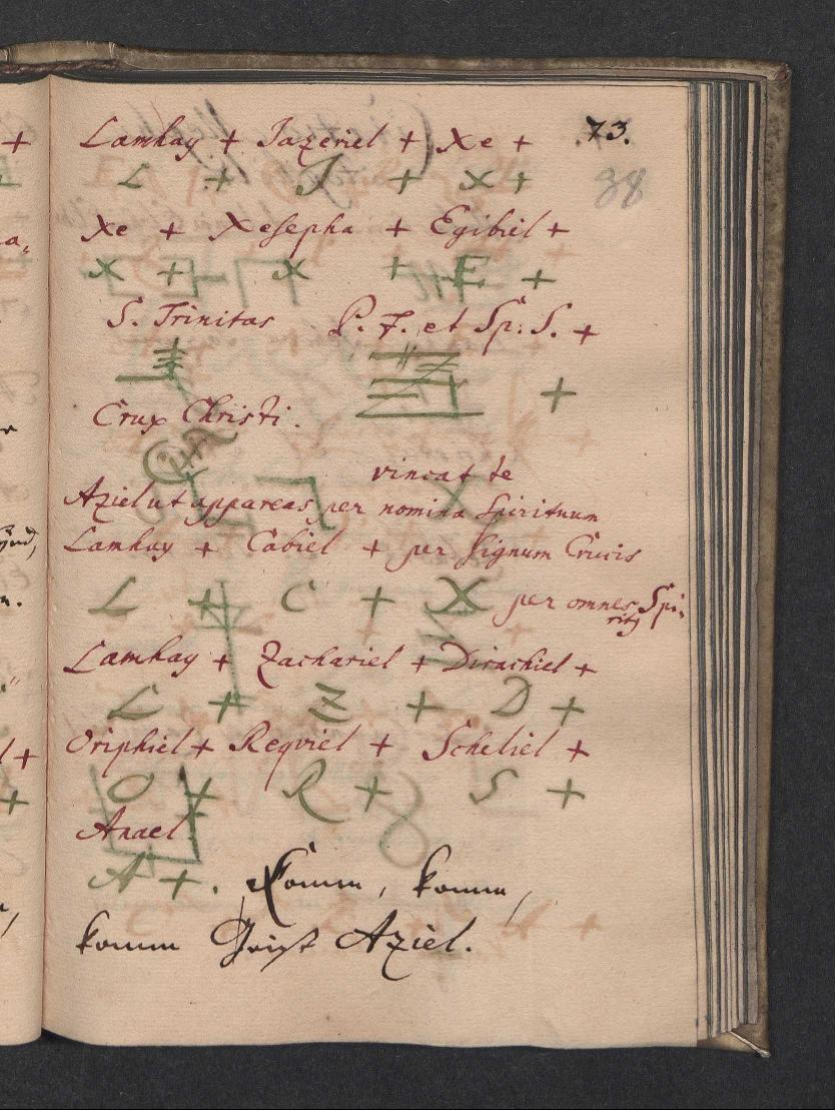 Lamhay + Jazeriel + Xe + 73.
L + J + X + 38
Xe + Xesepha + Egibiel +
X + X + E +
S. Trinitas P. F. et Sp: S. +
+
Crux Christi.
vincat te
Aziel ut appareas per nomina Spirituum
Lamhay + Cabiel + per signum Crucis
L + C + X per omnes Spi:
Lamhay + Zachariel + Dirachiel +
L + Z + D +
Oriphiel + Reqviel + Scheliel +
O + R + S +
Anael.
A +. Komm, komm,
komm Geist Aziel.